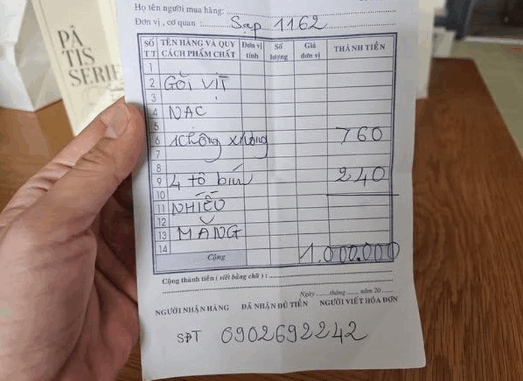 PÂ
TIS
SERIE
Họ tên người mua hàng:
Đơn vị, cơ quan : Sạp 1162
SỐ TT TÊN HÀNG VÀ QUY CÁCH PHẨM CHẤT Đơn vị tính Số lượng Giá đơn vị THÀNH TIỀN
1
2 GỎI VỊT
3
4 NẠC
5
6 1 không xương 760
7
8
9 4 tô bún 240
10
11 NHIỀU
12
13 MĂNG
14
Cộng 1.000.000
Cộng thành tiền ( viết bằng chữ ) :
Ngày tháng năm 20
NGƯỜI NHẬN HÀNG ĐÃ NHẬN ĐỦ TIỀN NGƯỜI VIẾT HÓA ĐƠN
SĐT 0902692242